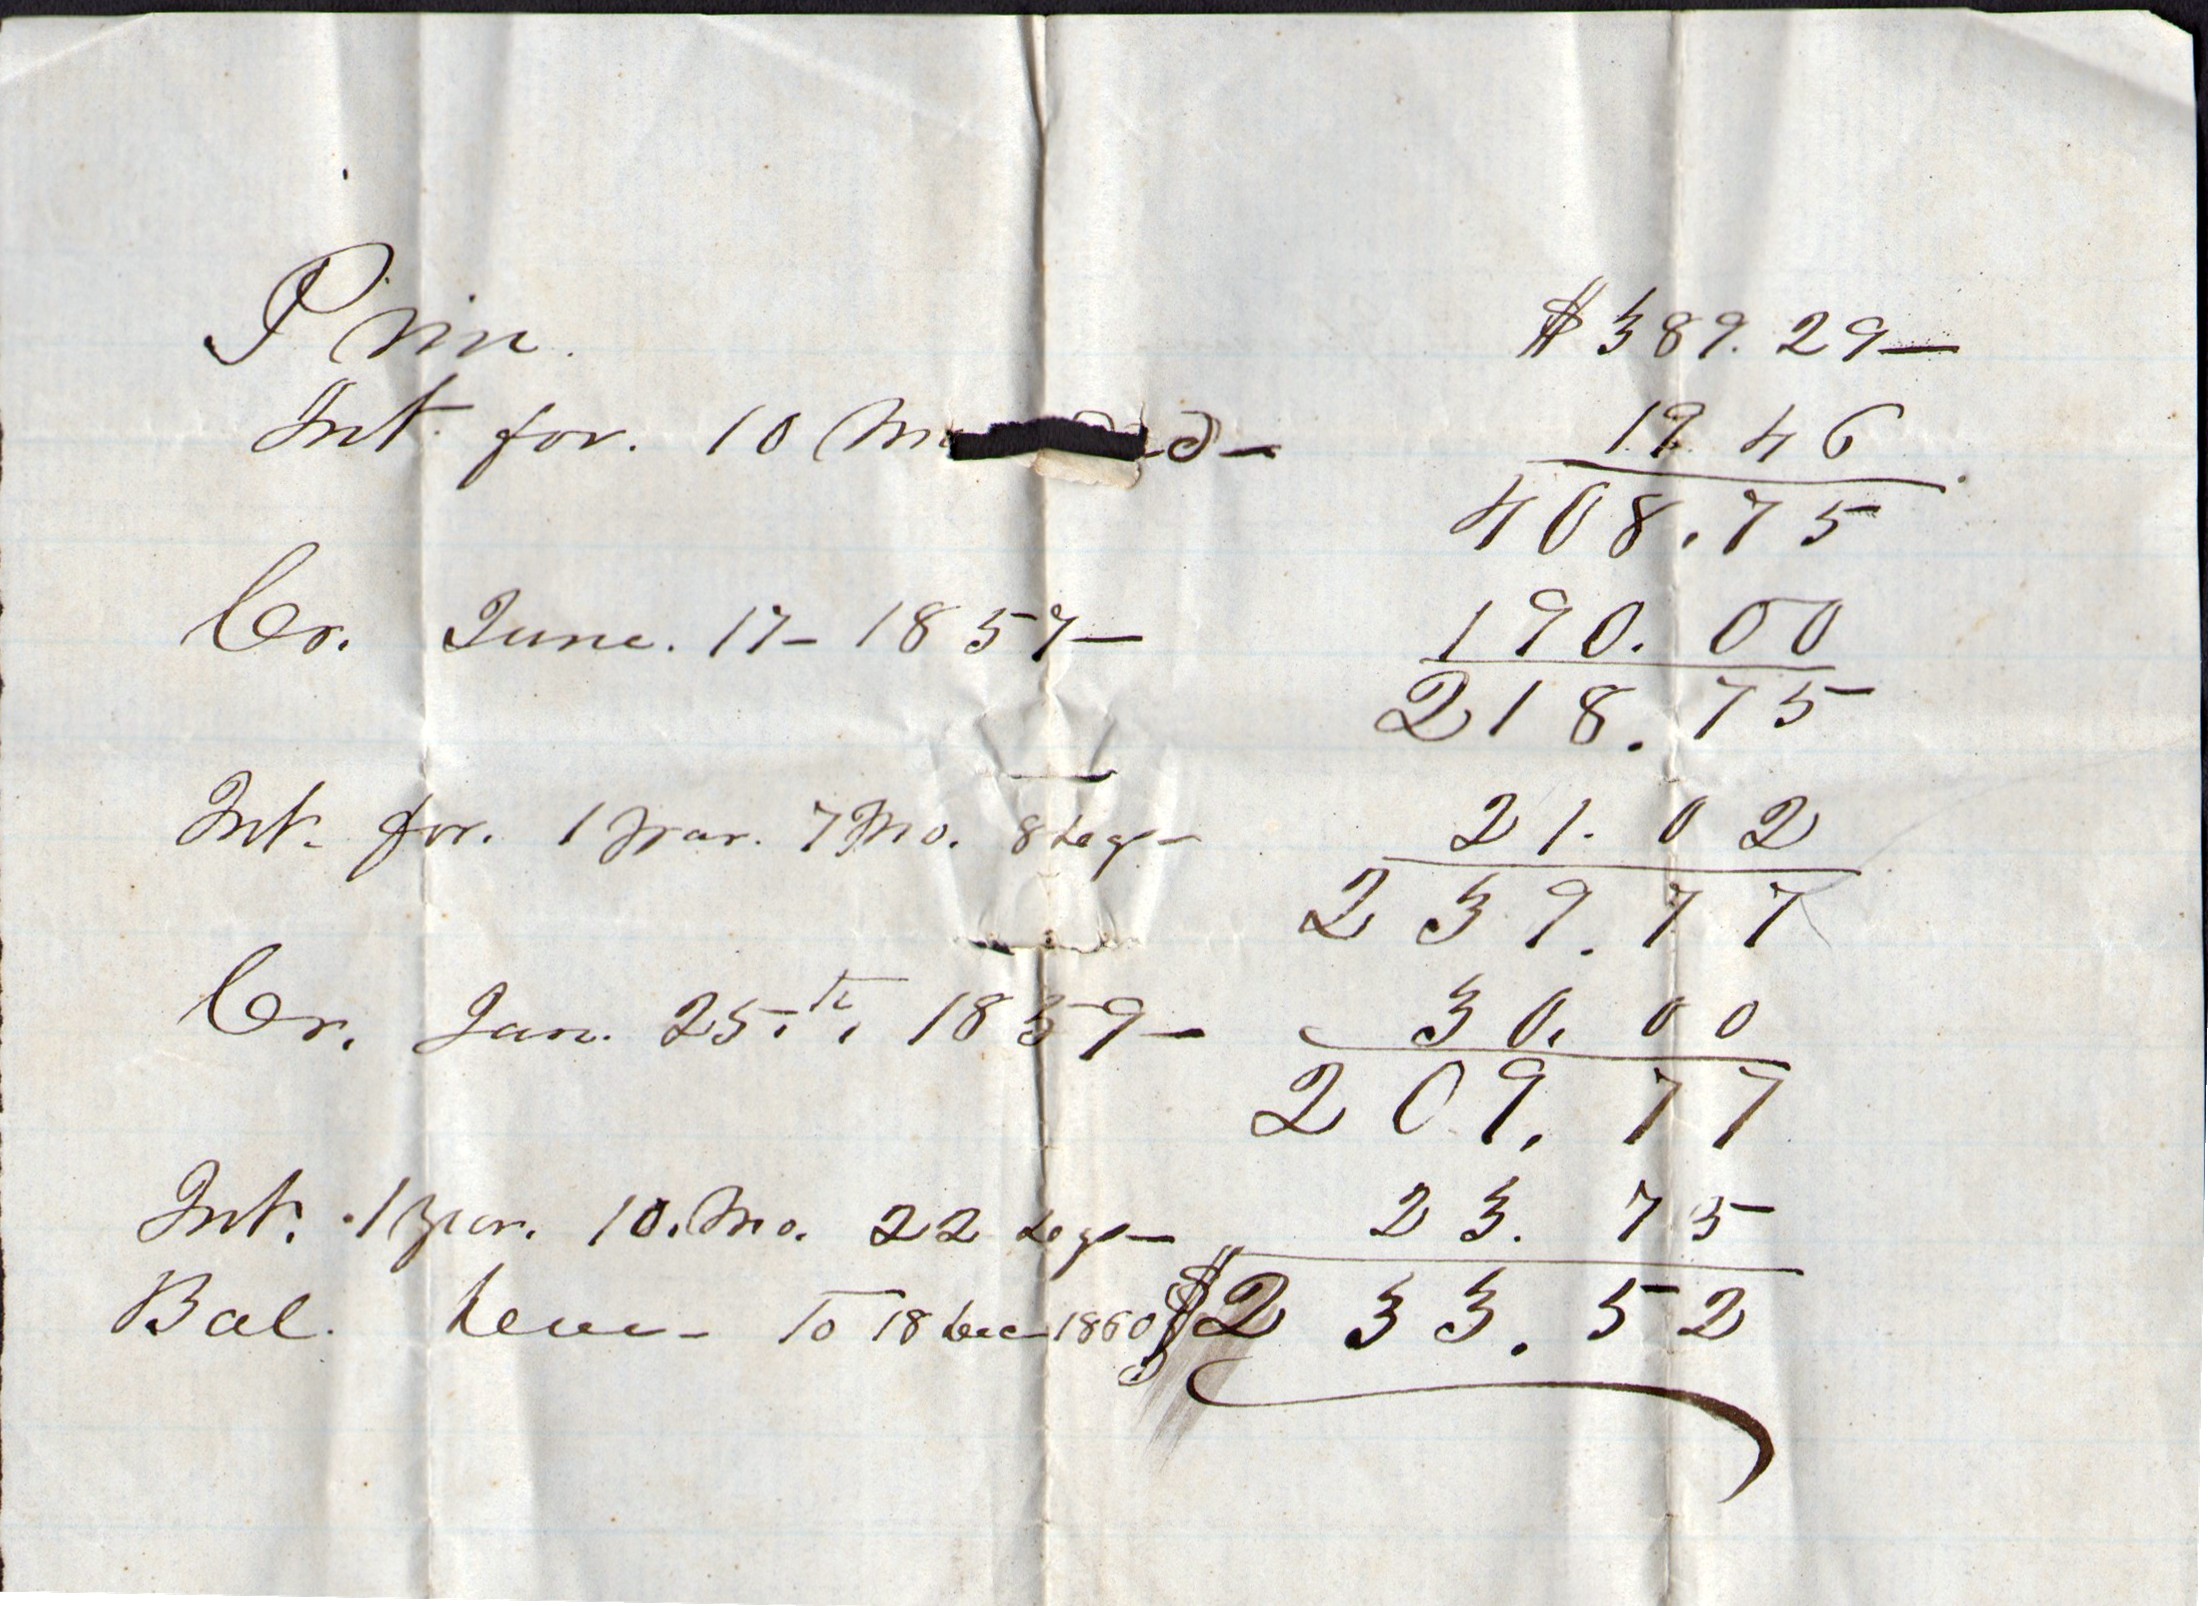 Prin. $389.29—
Int. for. 10 Mo 19 46
408.75
Cr. June. 17- 1857— 190.00
218.75
Int. for. 1 year. 7 Mo. 8 days— 21.02
239.77
Cr. Jan. 25.th, 1859— 30.00
209.77
Int. 1 year. 10. Mo. 22 days— 23.75
Bal. due - To 18 Dec 1860 $233.52